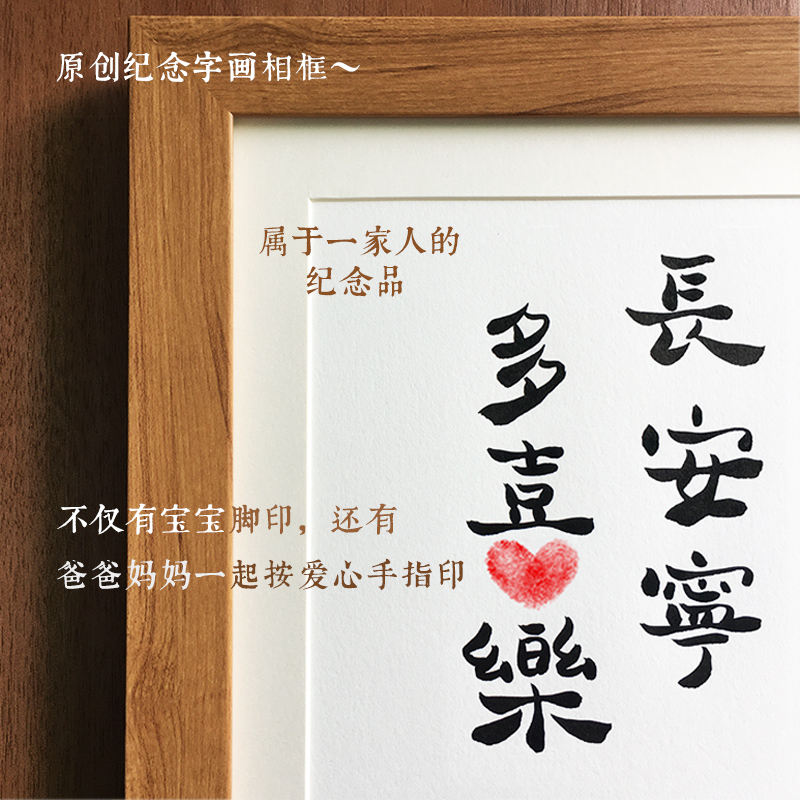 原创纪念字画相框～
属于一家人的
纪念品
長安寧
多喜樂
不仅有宝宝脚印，还有
爸爸妈妈一起按爱心手指印